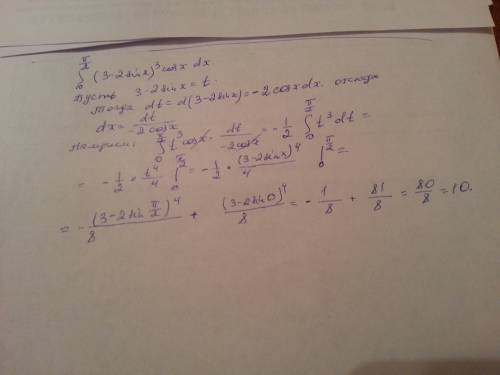 ∫₀^{π/2} (3-2sinx)³ cosx dx.
Пусть 3-2sinx = t.
Тогда dt = d(3-2sinx) = -2cosxdx. отсюда
dx = dt/(-2cosx)
Напишем: ∫₀^{π/2} t³ cosx · dt/(-2cosx) = -1/2 ∫₀^{π/2} t³dt =
= -1/2 · t⁴/4 |₀^{π/2} = -1/2 · (3-2sinx)⁴/4 |₀^{π/2} =
= -(3-2sin π/2)⁴/8 + (3-2sin0)⁴/8 = -1/8 + 81/8 = 80/8 = 10.